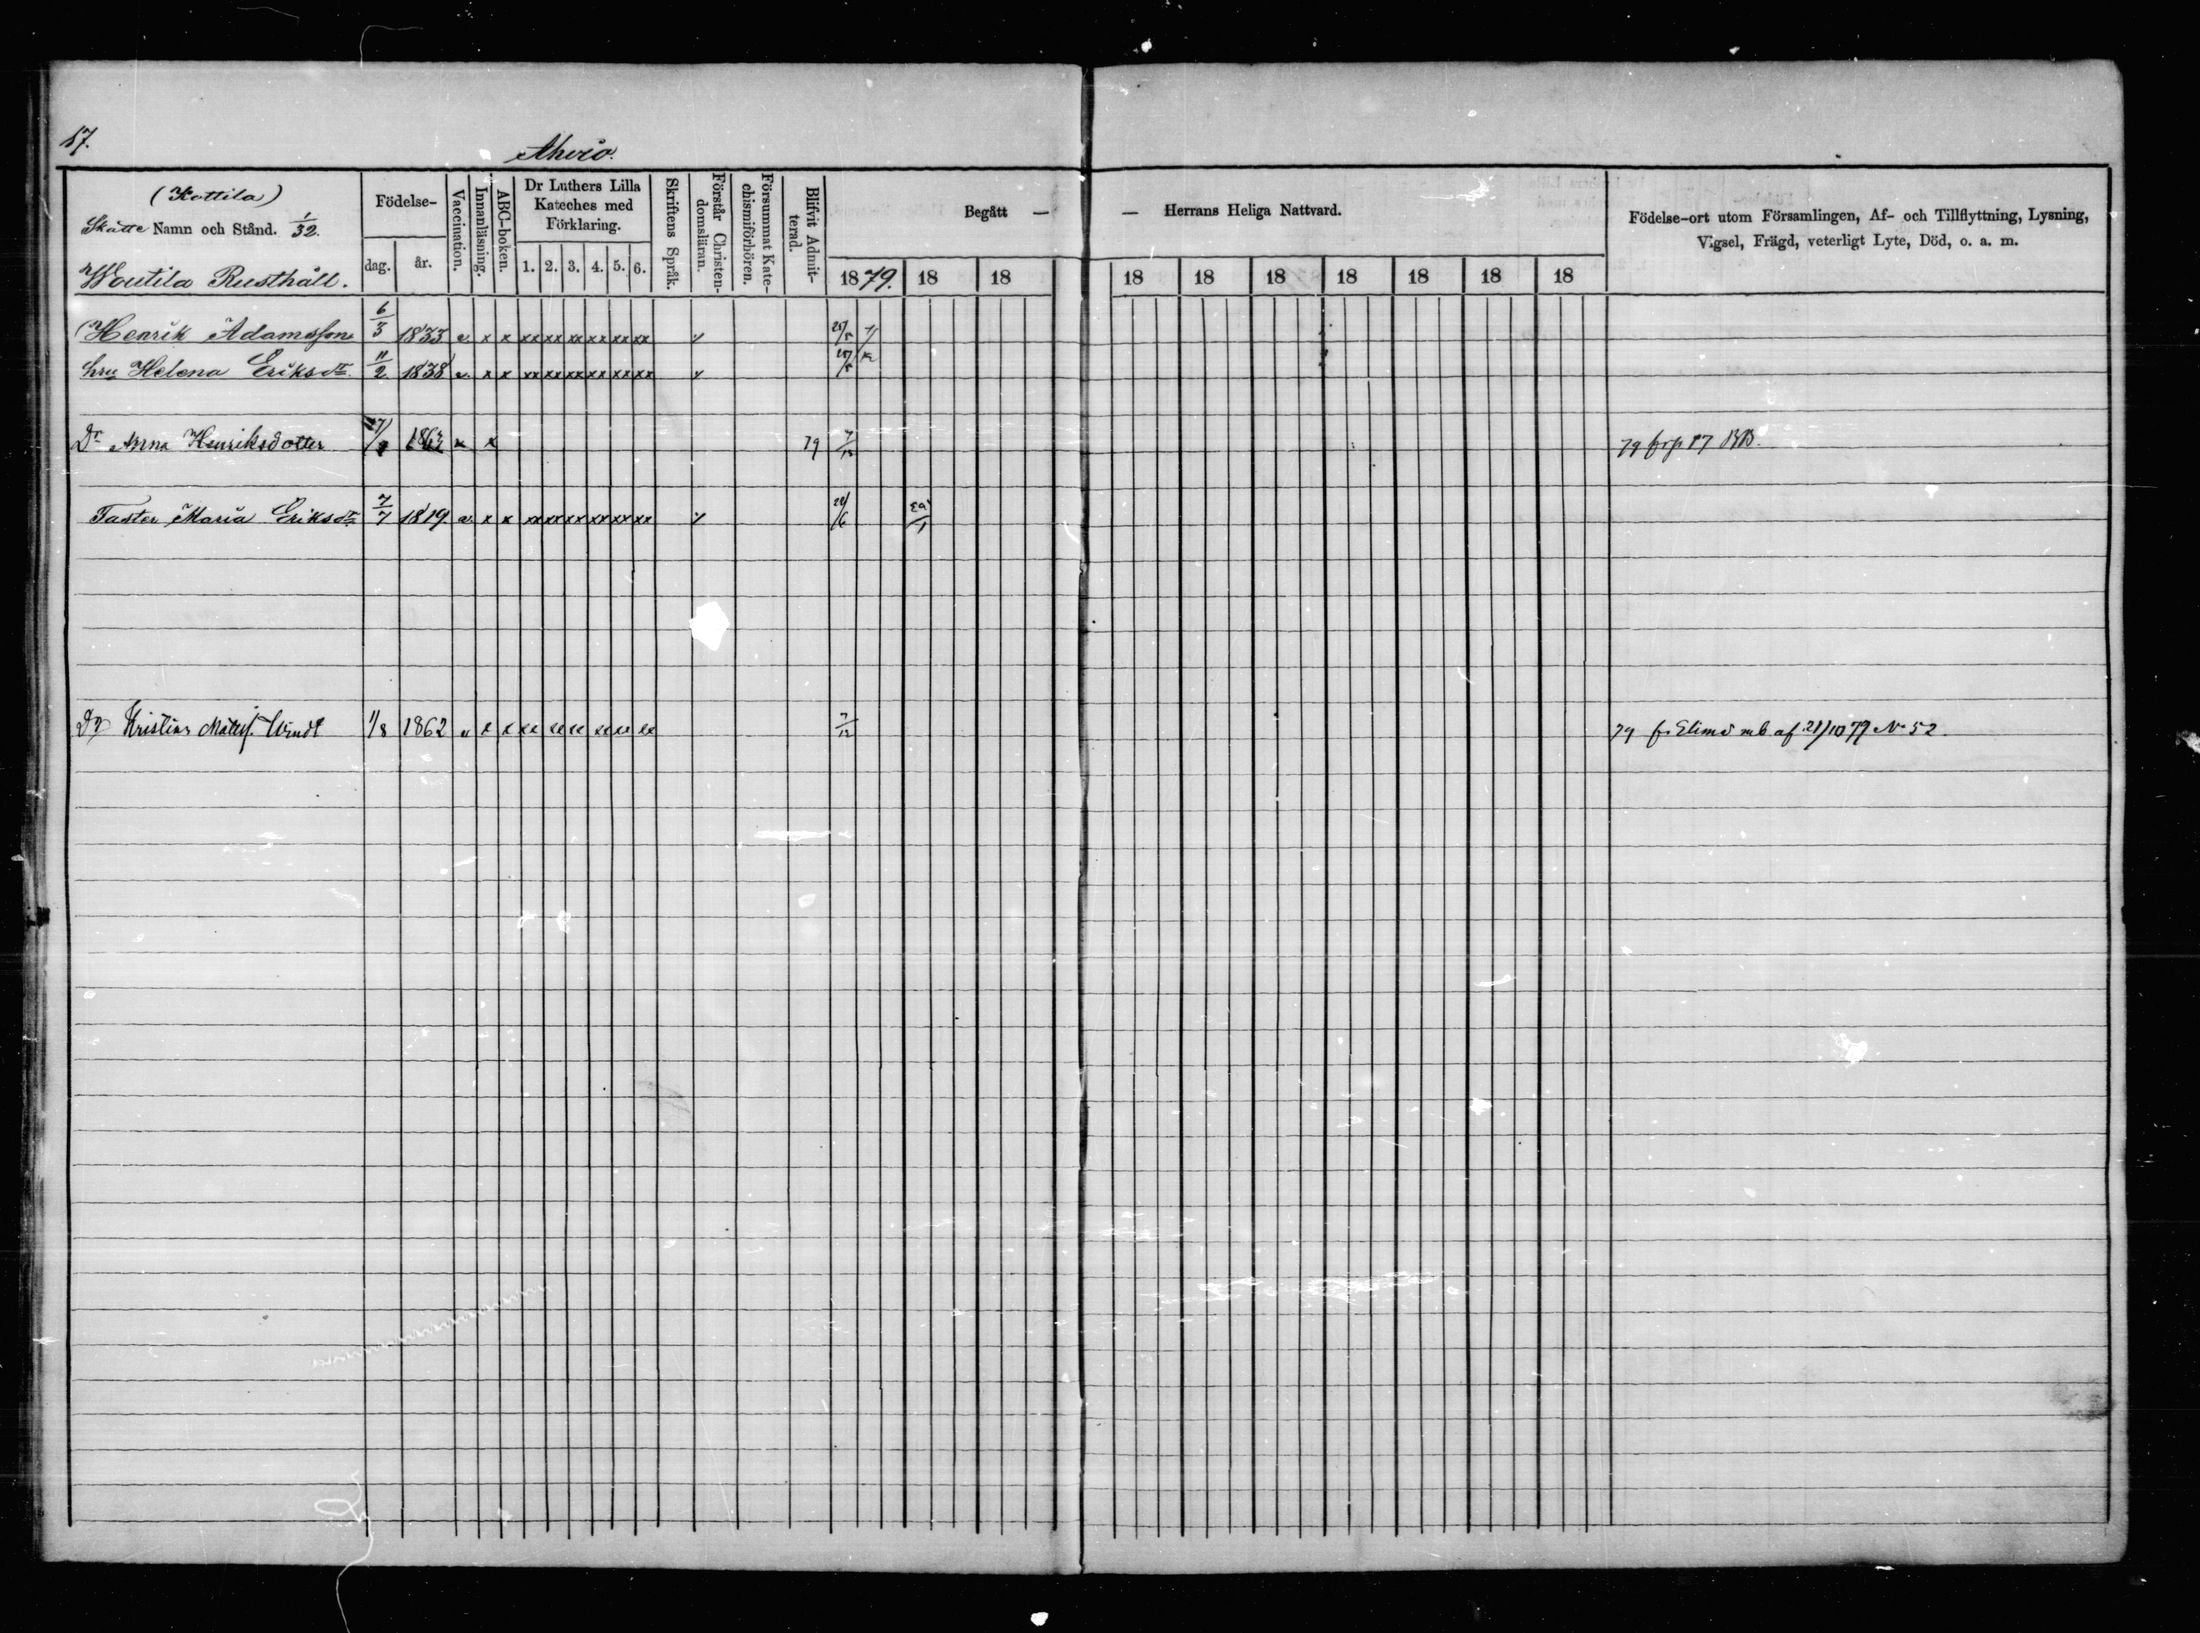 17.
Ahvio.
(Kottila)
Skatte Namn och Stånd. 1/32.
Födelse-
dag. år.
Vaccination.
Innanläsning.
ABC-boken.
Dr Luthers Lilla Kateches med Förklaring.
1. 2. 3. 4. 5. 6.
Skriftens Språk.
Förstår Christendomsläran.
Försummat Katechismiförhören.
Blifvit Admitterad.
Begått — — Herrans Heliga Nattvard.
1879. 18 18 18 18 18 18 18 18 18
Födelse-ort utom Församlingen, Af- och Tillflyttning, Lysning,
Vigsel, Frägd, veterligt Lyte, Död, o. a. m.
Rusthåll.
Henrik Adamsson 6/3 1833 v. x x xx xx xx xx xx xx
hru Helena Eriksdr 11/2 1838 v. x x xx xx xx xx xx xx
Dr Anna Henriksdotter 1863 x x 79 7/12 79 17 BB.
Faster Maria Eriksdr 7/7 1819 v. x x xx xx xx xx xx xx
Kristian 1/8 1862 v x x xx xx xx xx xx xx 7/12 79 fr Elimä mb af 21/10 79 No 52.